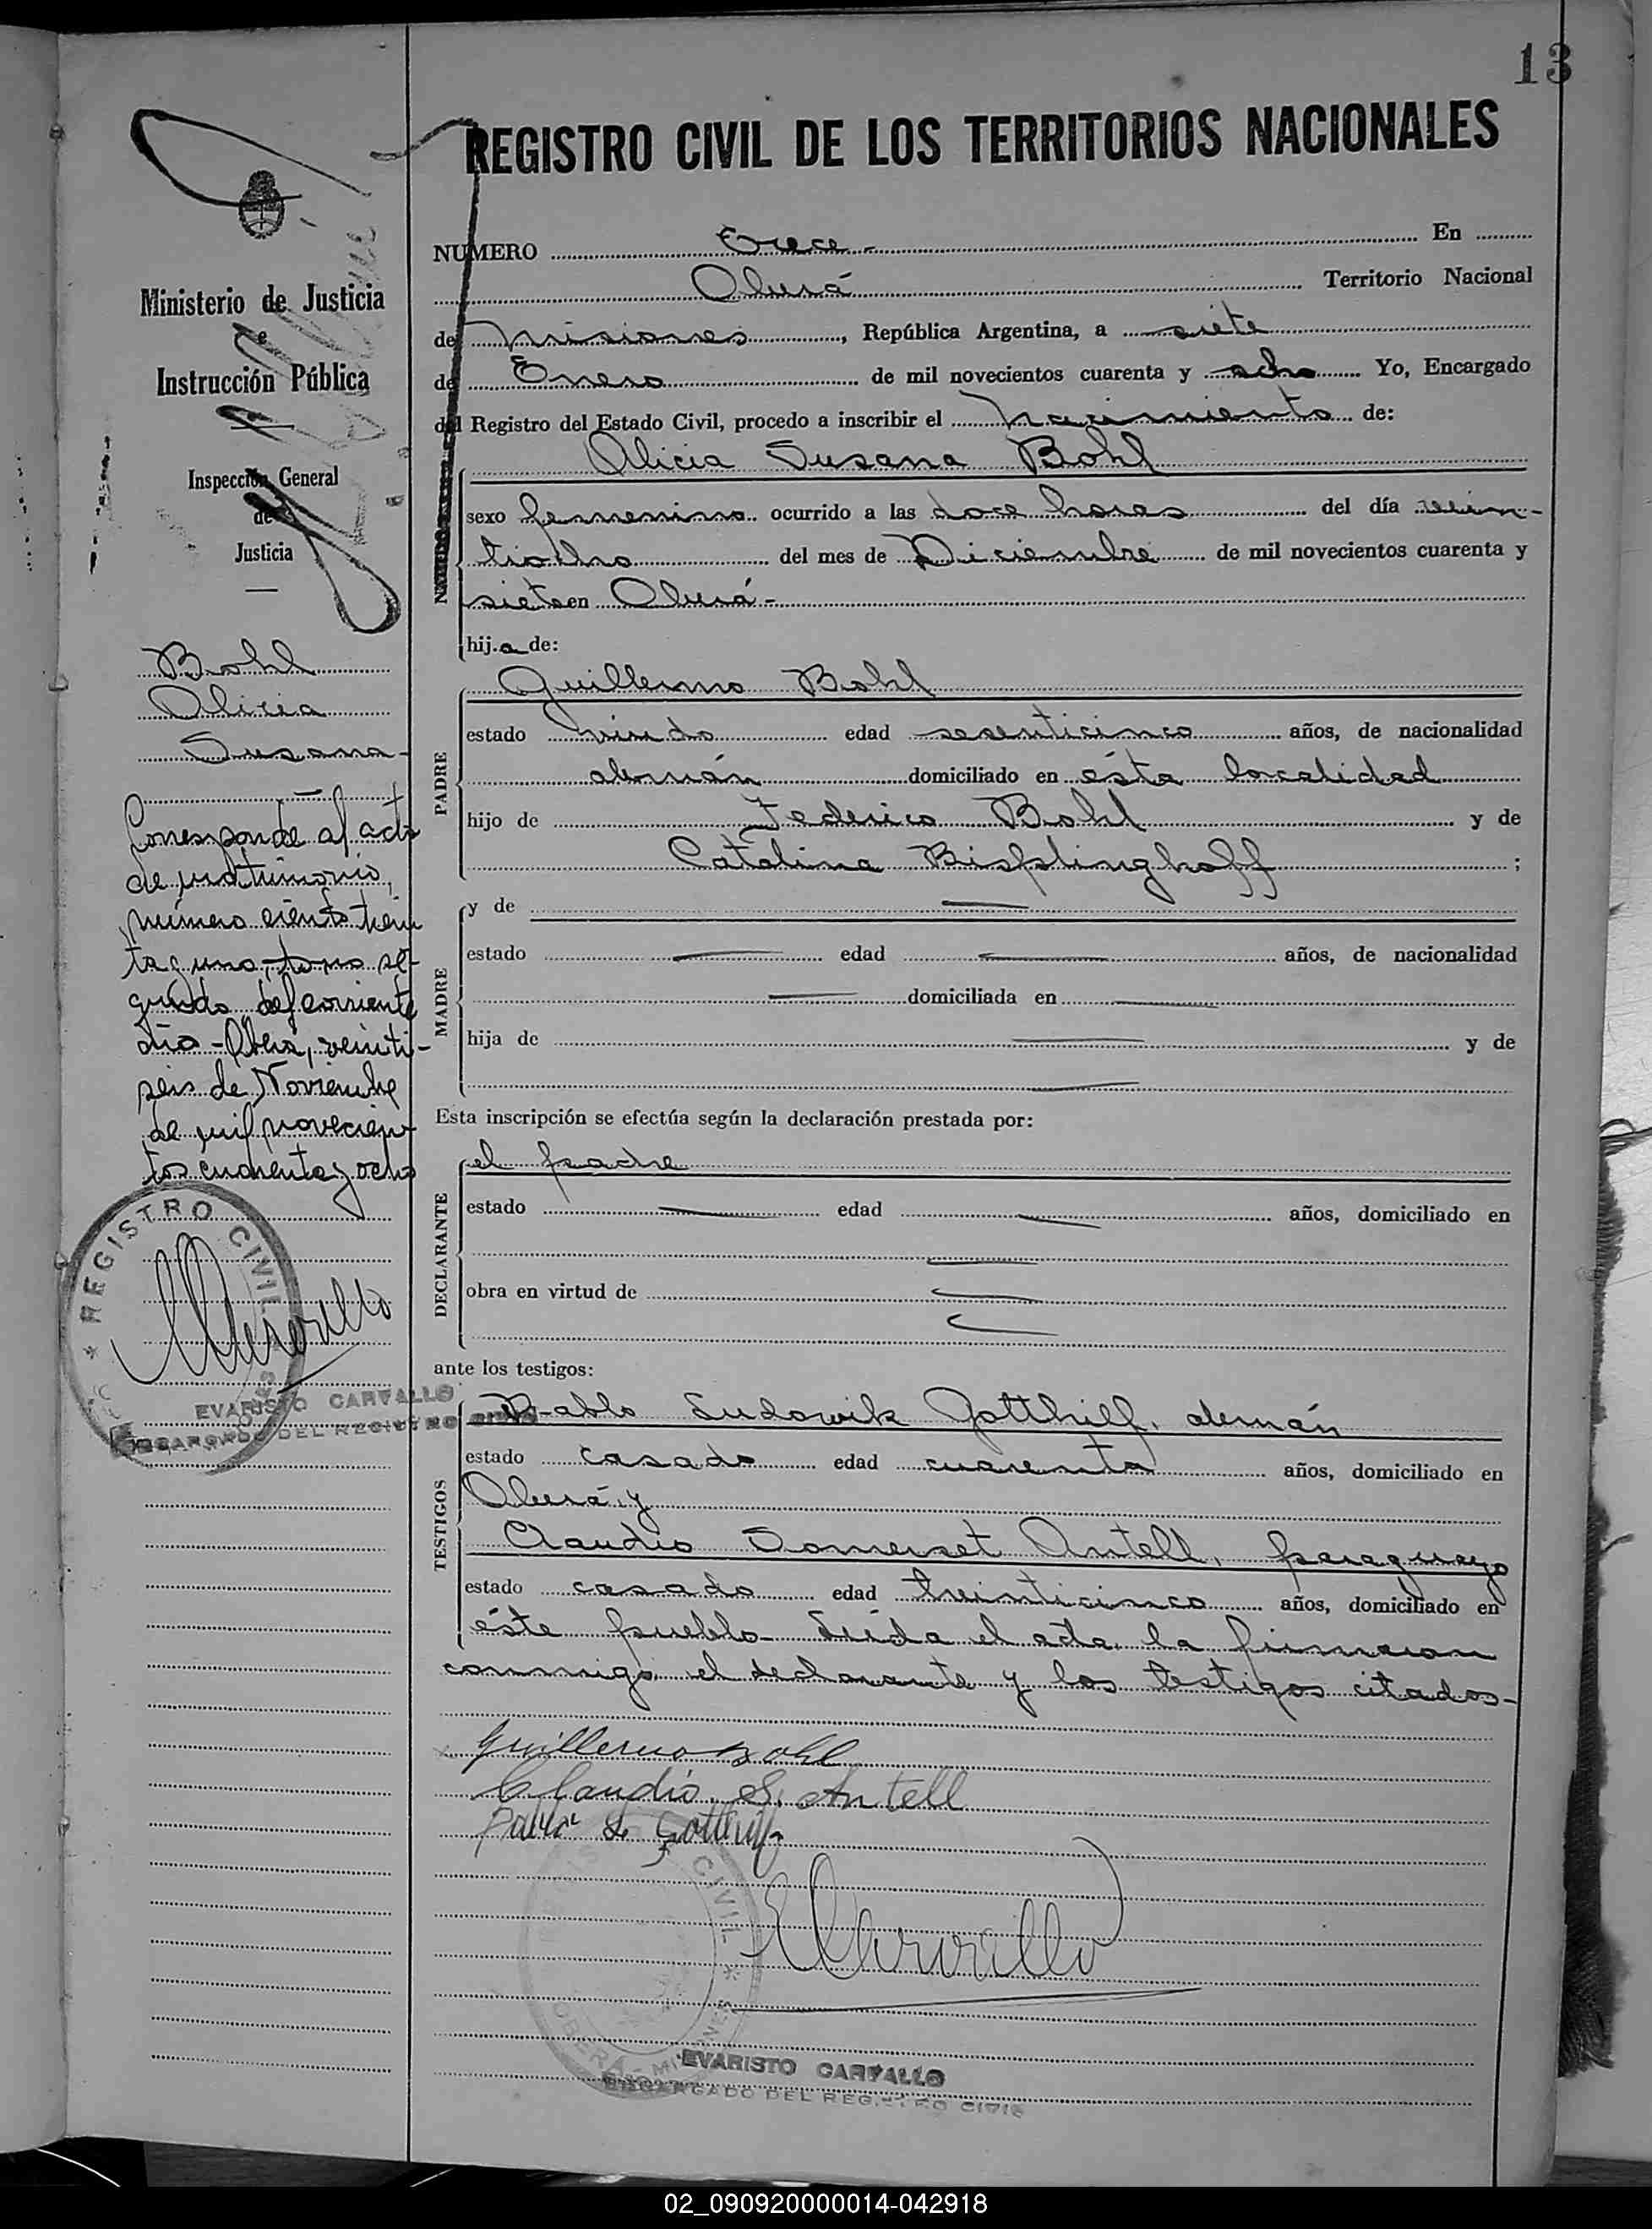 13
REGISTRO CIVIL DE LOS TERRITORIOS NACIONALES
NUMERO Trece - En
Oberá Territorio Nacional
de Misiones, República Argentina, a siete
de Enero de mil novecientos cuarenta y ocho Yo, Encargado
del Registro del Estado Civil, procedo a inscribir el nacimiento de:
Alicia Susana Bohl
sexo femenino ocurrido a las doce horas del día vein-
tiocho del mes de Diciembre de mil novecientos cuarenta y
siete en Oberá -
hija de:
PADRE
Guillermo Bohl
estado viudo edad sesenticinco años, de nacionalidad
alemán domiciliado en ésta localidad
hijo de Federico Bohl y de
Catalina Bisplinghoff ;
MADRE
y de —
estado — edad — años, de nacionalidad
— domiciliada en —
hija de — y de
—
Esta inscripción se efectúa según la declaración prestada por:
DECLARANTE
el padre
estado — edad — años, domiciliado en
—
obra en virtud de —
—
ante los testigos:
TESTIGOS
Pablo Ludowik Gotthilf, alemán
estado casado edad cuarenta años, domiciliado en
Oberá y
Claudio Somerset Antell, paraguayo
estado casado edad treinticinco años, domiciliado en
éste pueblo Leída el acta, la firmaron
conmigo el declarante y los testigos citados-
Guillermo Bohl
Claudio S. Antell
Pablo L. Gotthilf
REGISTRO CIVIL * OBERÁ - MISIONES
EVARISTO CARVALLO
ENCARGADO DEL REGISTRO CIVIL
Ministerio de Justicia
e
Instrucción Pública
Inspección General
de
Justicia
Bohl
Alicia
Susana -
Corresponde al acta
de matrimonio,
número ciento trein
ta y uno, tomo se-
gundo del corriente
año - Oberá, veinti-
seis de Noviembre
de mil novecien-
tos cuarenta y ocho
* REGISTRO CIVIL
EVARISTO CARVALLO
ENCARGADO DEL REGISTRO CIVIL
02_090920000014-042918